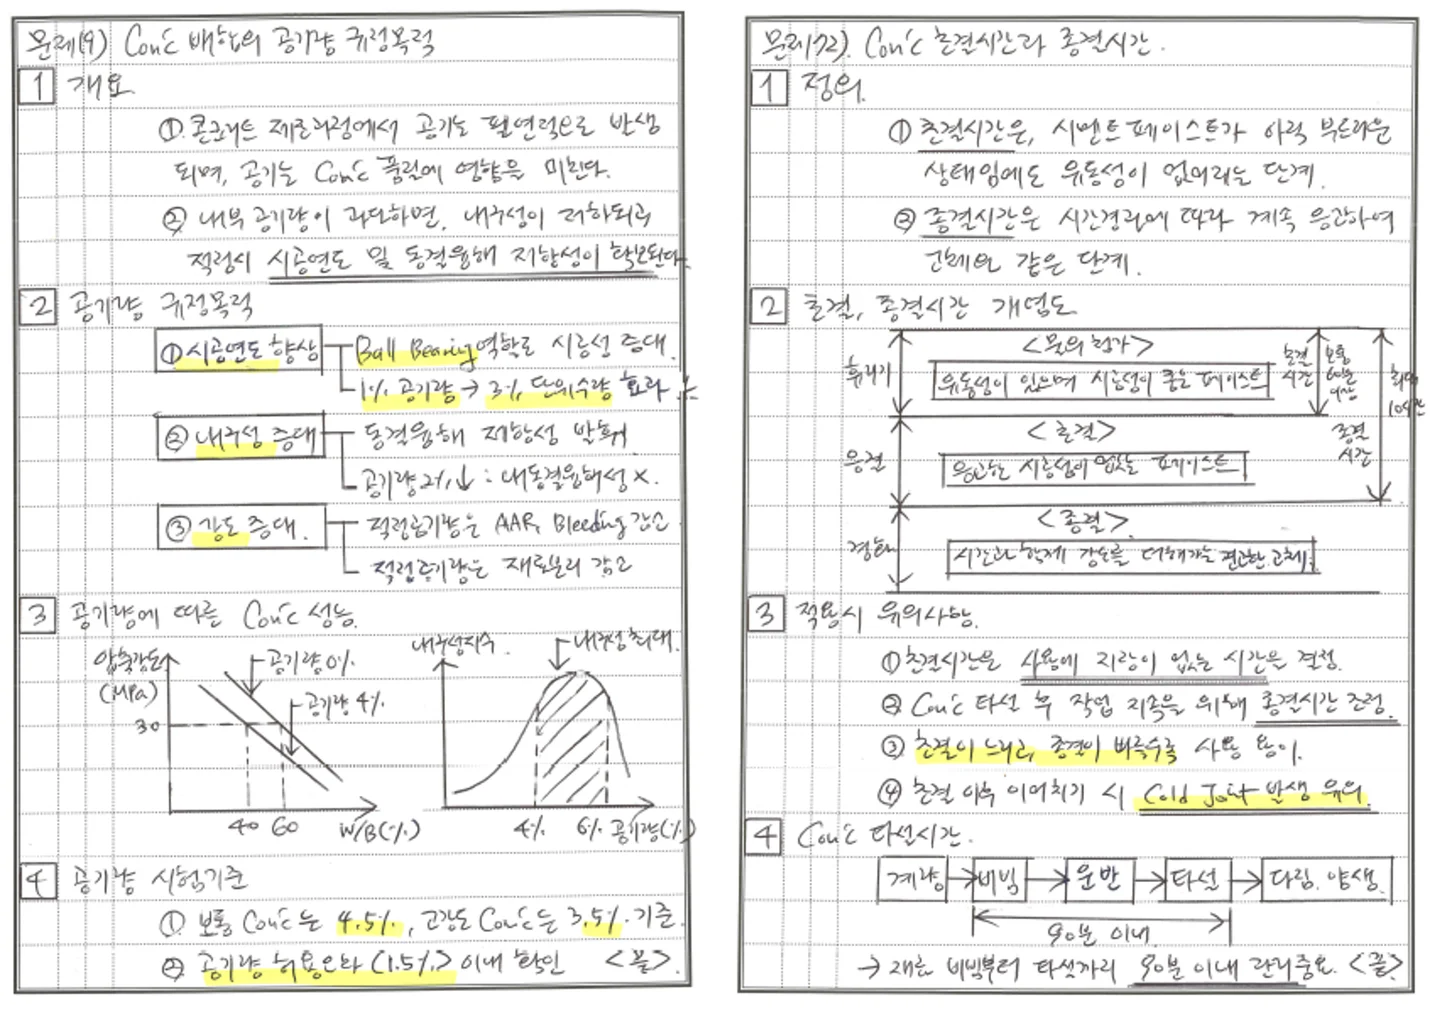 문제(9) Con'c 배합의 공기량 규정목적
1 개요.
① 콘크리트 제조과정에서 공기는 필연적으로 발생
되며, 공기는 Con'c 품질에 영향을 미친다.
② 내부 공기량이 과다하면, 내구성이 저하되고
적정시 시공연도 및 동결융해 저항성이 확보된다.
2 공기량 규정목적
① 시공연도 향상
Ball Bearing 역할로 시공성 증대.
1% 공기량 → 3% 단위수량 효과
② 내구성 증대
동결융해 저항성 발휘
공기량 2%↓ : 내동결융해성 X.
③ 강도 증대.
적정공기량은 AAR, Bleeding 감소
적정공기량은 재료분리 감소
3 공기량에 따른 Con'c 성능.
압축강도
(MPa)
공기량 0%
공기량 4%
30
40 60 W/B(%)
내구성지수.
내구성 최대.
4% 6% 공기량(%)
4 공기량 시험기준
① 보통 Con'c는 4.5%, 고강도 Con'c는 3.5% 기준.
② 공기량 허용오차 (1.5%) 이내 확인 <끝>.
문제(12). Con'c 초결시간과 종결시간.
1 정의.
① 초결시간은, 시멘트 페이스트가 아직 부드러운
상태임에도 유동성이 없어지는 단계.
② 종결시간은 시간경과에 따라 계속 응관하여
고체와 같은 단계.
2 초결, 종결시간 개념도
<물의 첨가>
유동성이 있으며 시공성이 좋은 페이스트
초결
시간
보통
60분
이상
최대
10시간
<초결>
응결
응고하는 시공성이 없는 페이스트
종결
시간
<종결>
경화
시간과 함께 강도를 더해가는 견고한 고체.
3 적용시 유의사항.
① 초결시간은 사용에 지장이 없는 시간을 결정.
② Con'c 타설 후 작업 지속을 위해 종결시간 조정.
③ 초결이 느리고, 종결이 빠를수록 사용 용이.
④ 초결 이후 이어치기 시 Cold Joint 발생 유의.
4 Con'c 타설시간.
계량 → 비빔 → 운반 → 타설 → 다림. 양생.
90분 이내.
→ 재료 비빔부터 타설까지 90분 이내 관리중요. <끝>